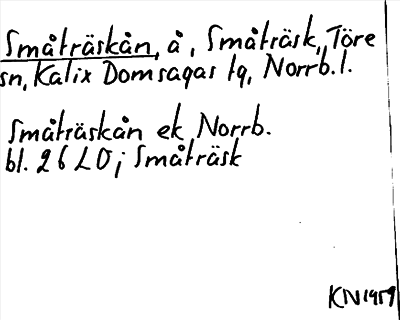 Småträskån, å, Småträsk, Töre
sn, Kalix Domsagas tg, Norrb. l.
Småträskån ek Norrb.
bl. 26 LO; Småträsk
KN 1959